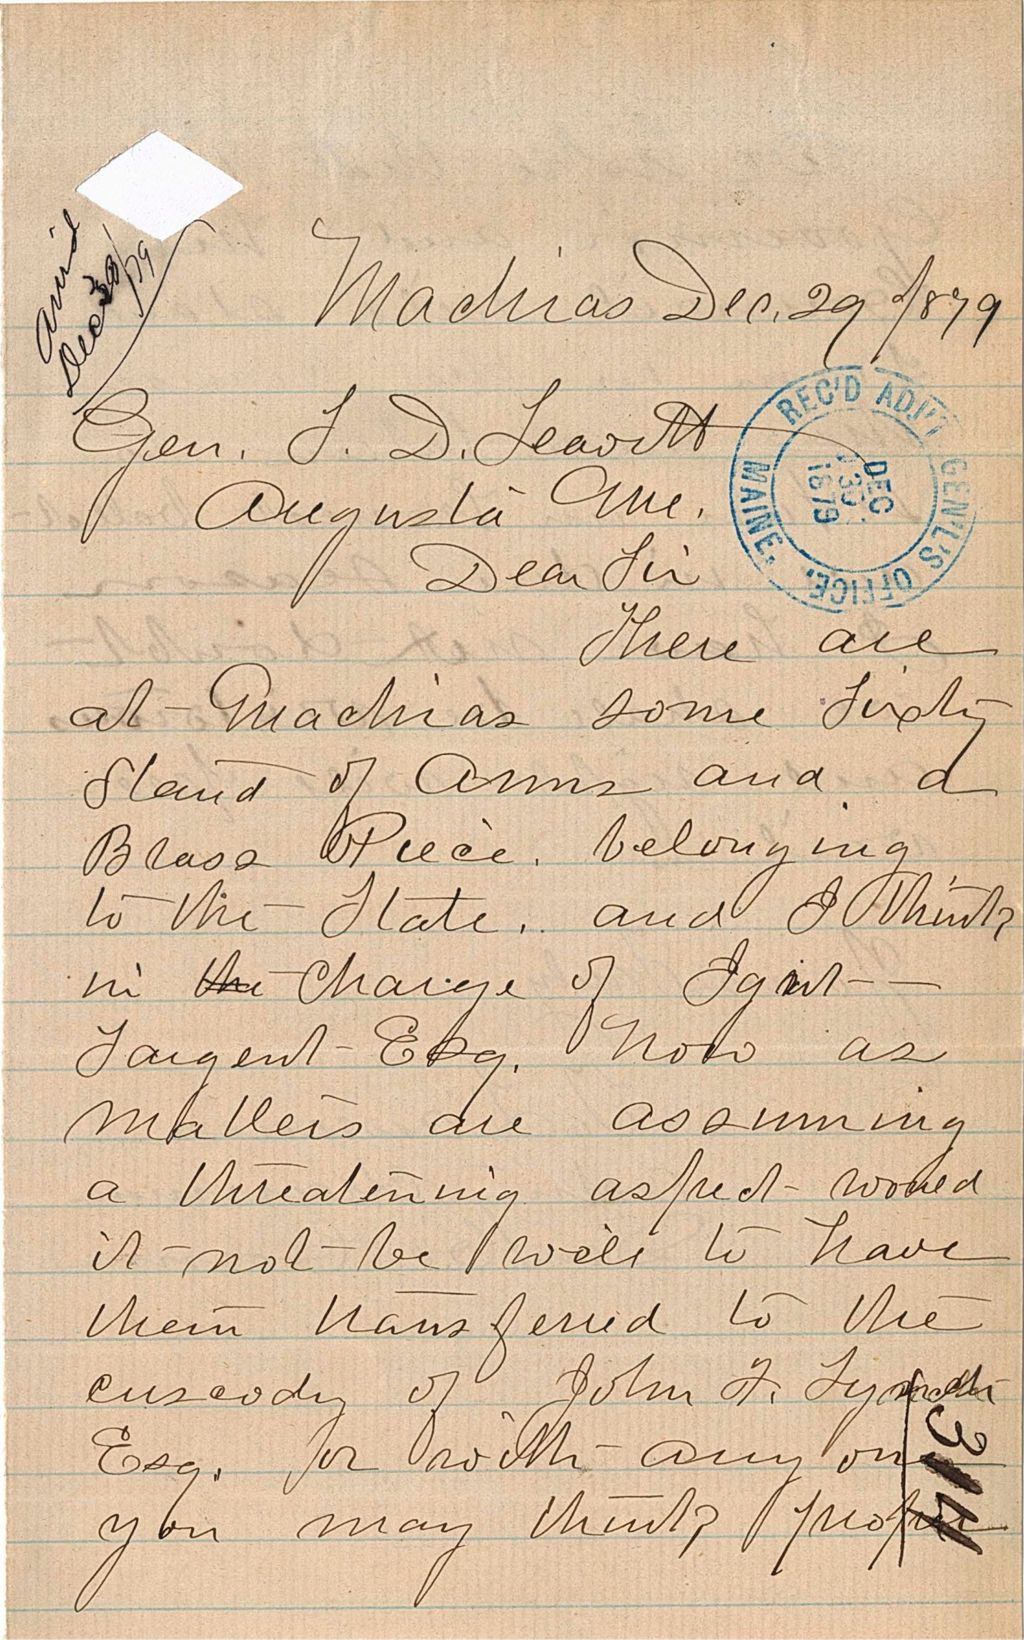 Ans'd
Dec 30/79
Machias Dec. 29 /1879
Gen. S. D. Leavitt
Augusta Me.
REC'D ADJ'T GEN'L'S OFFICE, MAINE.
DEC
30
1879
Dear Sir
There are
at Machias some Sixty
Stand of Arms and a
Brass Piece. belonging
to the State. and I think
in the Charge of Ignt
Sargent Esq. Now as
matters are assuming
a threatening aspect would
it not be well to have
them transferred to the
custody of John F. Lynch
Esq. or with any one
you may think proper
314